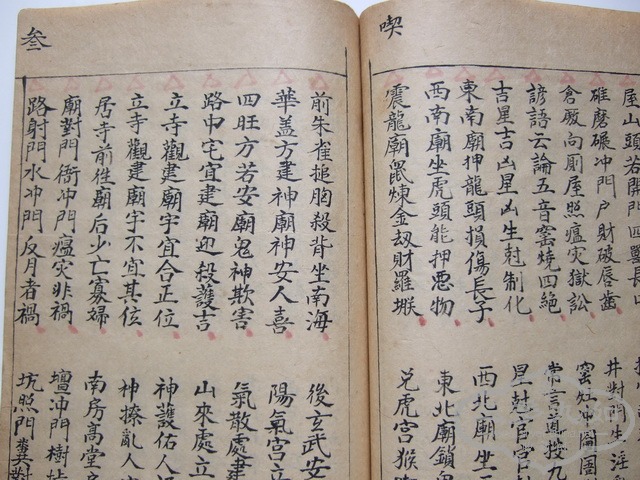 喫
屋山頭若開門四獸長
碓磨碾冲門户財破唇齒 井對門生淫
倉廒向厠屋照瘟灾獄訟 窑灶冲
諺語云論五音窑燒四絶 常言道投九
吉星吉凶星凶生尅制化 星尅官
東南廟抻龍頭損傷長子 西北廟坐
西南廟坐虎頭能押悪物 東北廟鎖
震龍廟鼠煉金刼財羅㬋 兑虎宫猴
叁
前朱雀搥胸殺背坐南海 後玄武安
華盖方建神廟神安人喜 陽氣宫立
四旺方若安廟鬼神欺害 氣散處建
路中宅宜建廟迎殺護吉 山來處立
立寺觀建廟宇宜合正位 神護佑人
立寺觀建廟宇不宜其位 神撩亂人
居寺前住廟后少亡寡婦 南房高堂
廟對門衙冲門瘟灾非禍 壇冲門樹
路射門水冲門反月者禍 坑照門糞對